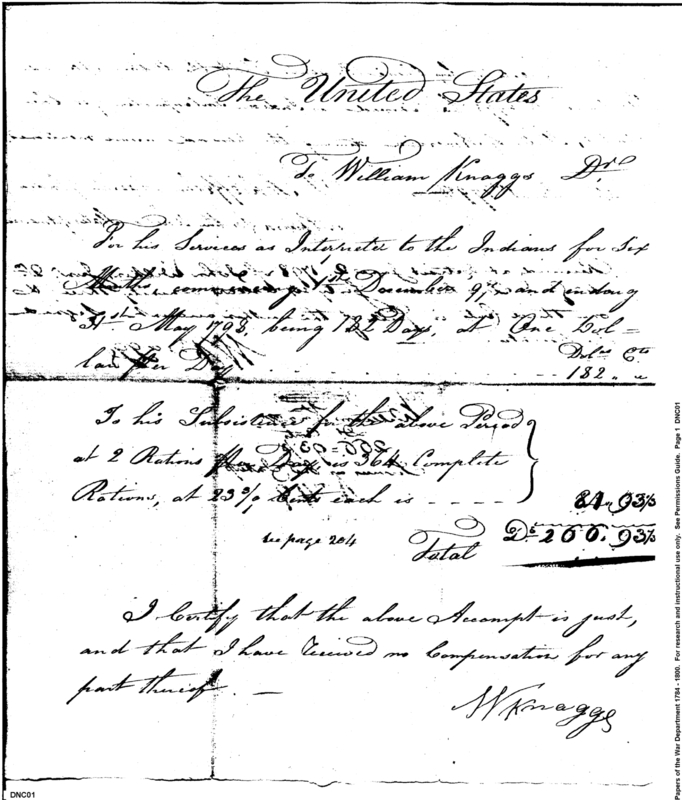 The United States
To William Knaggs Dr.
For his Services as Interpreter to the Indians for Six
Months commencing 1st December 97 and ending
31st May 1798, being 182 Days, at One Dol=
lar per Day
Dolrs Cts
182 " "
To his Subsistence for the above Period
at 2 Rations per Day is 364 Complete
Rations, at 23 Cents each is - - - -
93
see page 204
Total Ds 266. 93
I Certify that the above Accompt is just,
and that I have received no Compensation for any
part thereof. —
W Knaggs
DNC01
Papers of the War Department 1784 - 1800. For research and instructional use only. See Permissions Guide. Page 1 DNC01